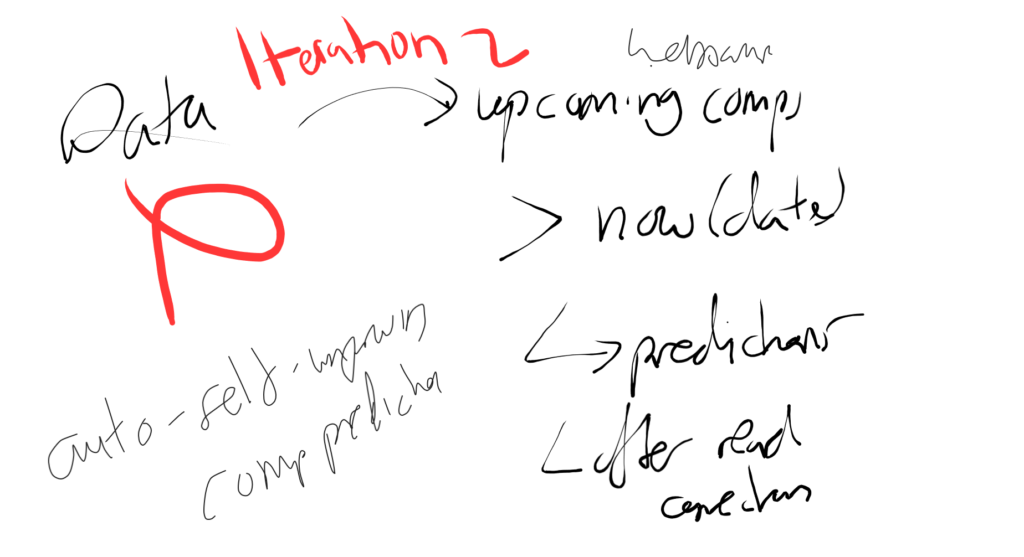 Iteration 2
Data
upcoming comps
> now(date)
predictions
after read
corrections
auto-self-improvin
comp predictin